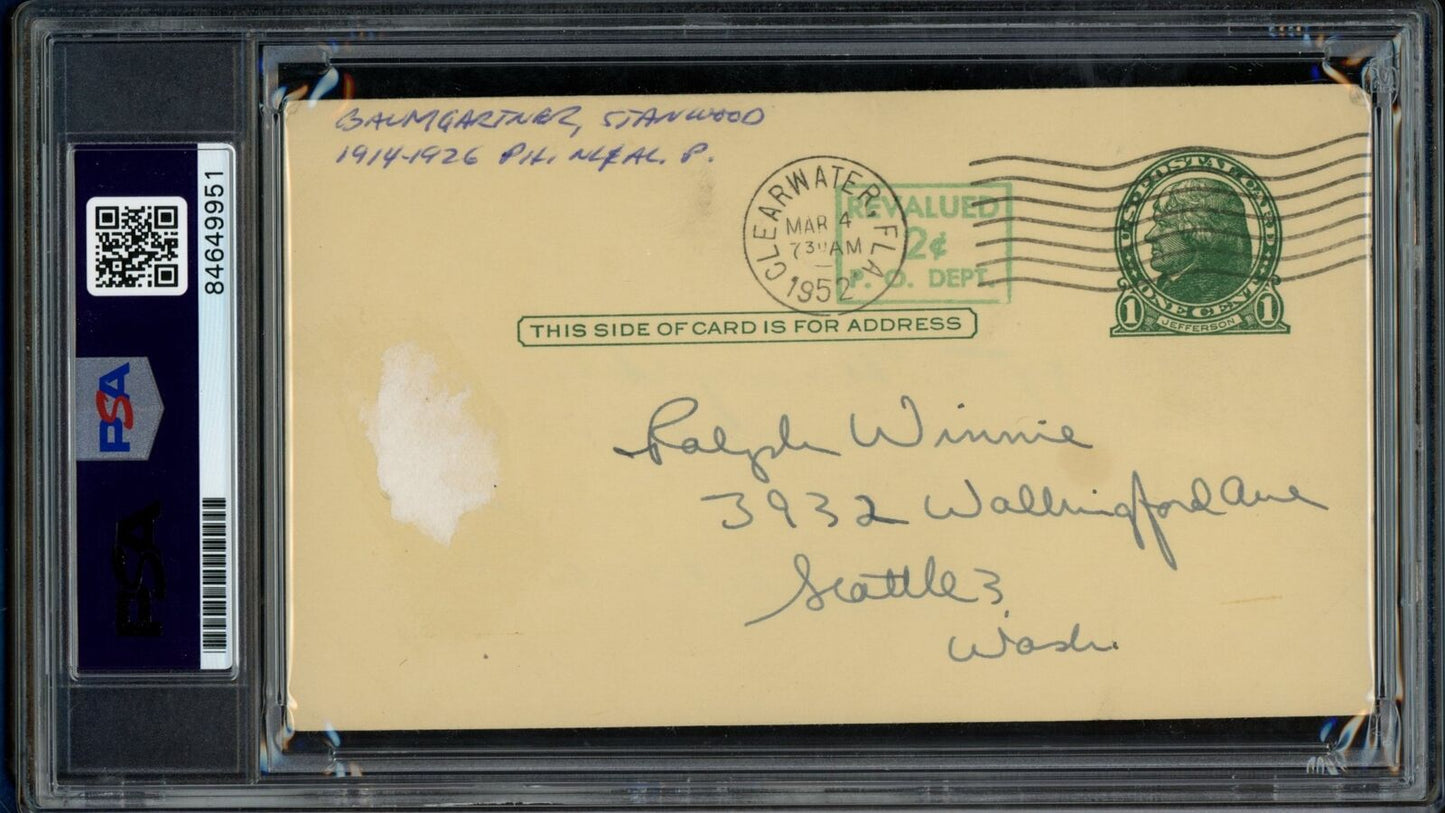 BAUMGARTNER, STANWOOD
1914-1926 PH. NL&AL. P.
CLEARWATER, FLA
MAR 4
730 AM
1952
REVALUED
2¢
P. O. DEPT.
U.S. POSTAL CARD
ONE CENT
1 JEFFERSON 1
THIS SIDE OF CARD IS FOR ADDRESS
Ralph Winnie
3932 Wallingford Ave
Seattle 3,
Wash.
84649951
PSA
PSA